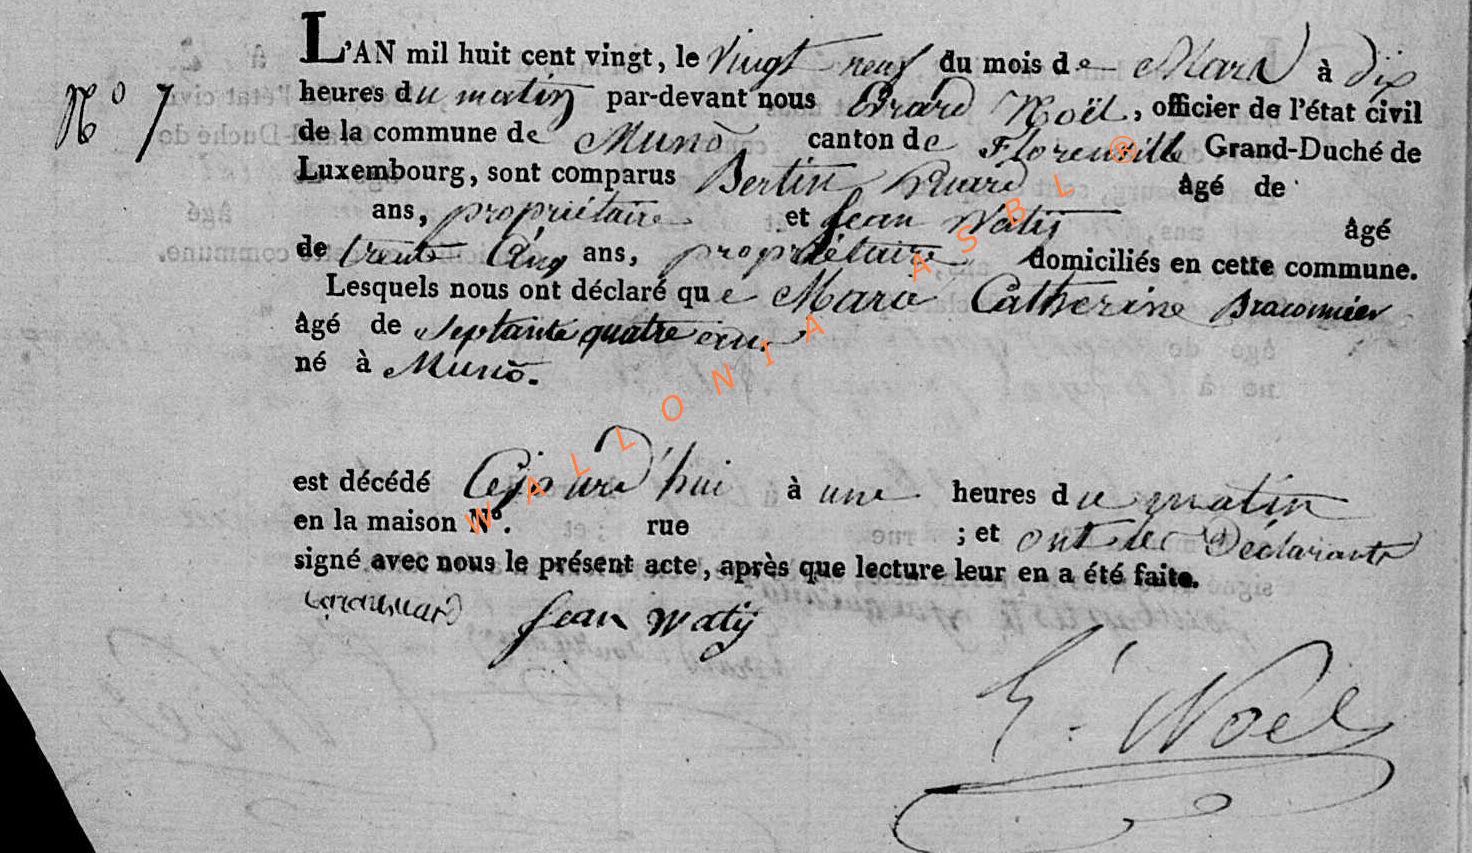 N° 7
L'AN mil huit cent vingt, le vingt neuf du mois de Mars à dix
heures du matin par-devant nous Erard Noël, officier de l'état civil
de la commune de Muno canton de Florenville Grand-Duché de
Luxembourg, sont comparus Bertin huard âgé de
ans, propriétaire et Jean Watij âgé
de trente Cinq ans, propriétaire domiciliés en cette commune.
Lesquels nous ont déclaré que Marie Catherine Braconnier
âgé de septante quatre ans.
né à Muno.
est décédé Cejourd'hui à une heures du matin
en la maison N°. rue ; et ont les Déclarants
signé avec nous le présent acte, après que lecture leur en a été faite.
Jean Watij
E. Noël
WALLONIA ASBL ®